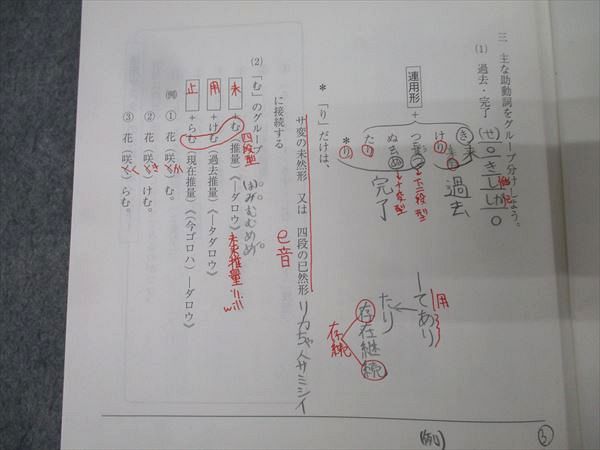 三 主な助動詞をグループ分けしよう。
(1) 過去・完了
(せ)○きししか○
連用形 +
き
けり
つ
ぬ
たり
*り
過去
完了
下二段型
ナ変型
用
ーてあり
たり
存在継続
存続
*「り」だけは、
サ変の未然形 又は 四段の已然形
に接続する
e音
リカちゃんサミシイ
(2) 「む」のグループ
四段型
未 +む(推量)《ーダロウ》未来推量 will
用 +けむ(過去推量)《ータダロウ》
止 +らむ(現在推量)《今ゴロハ)ーダロウ》
(例) ① 花(咲く)む。 か
② 花(咲く)けむ。 き
③ 花(咲く)らむ。 く
(例)
3